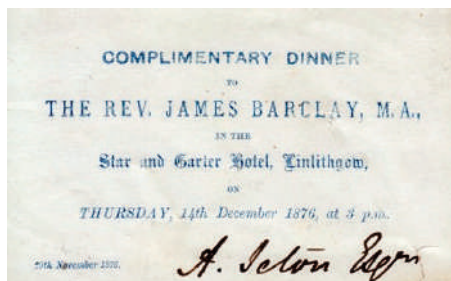 COMPLIMENTARY DINNER
TO
THE REV. JAMES BARCLAY, M.A.,
IN THE
Star and Garter Hotel, Linlithgow,
ON
THURSDAY, 14th December 1876, at 3 p.m.
November 1876.
A. Seton Esqr